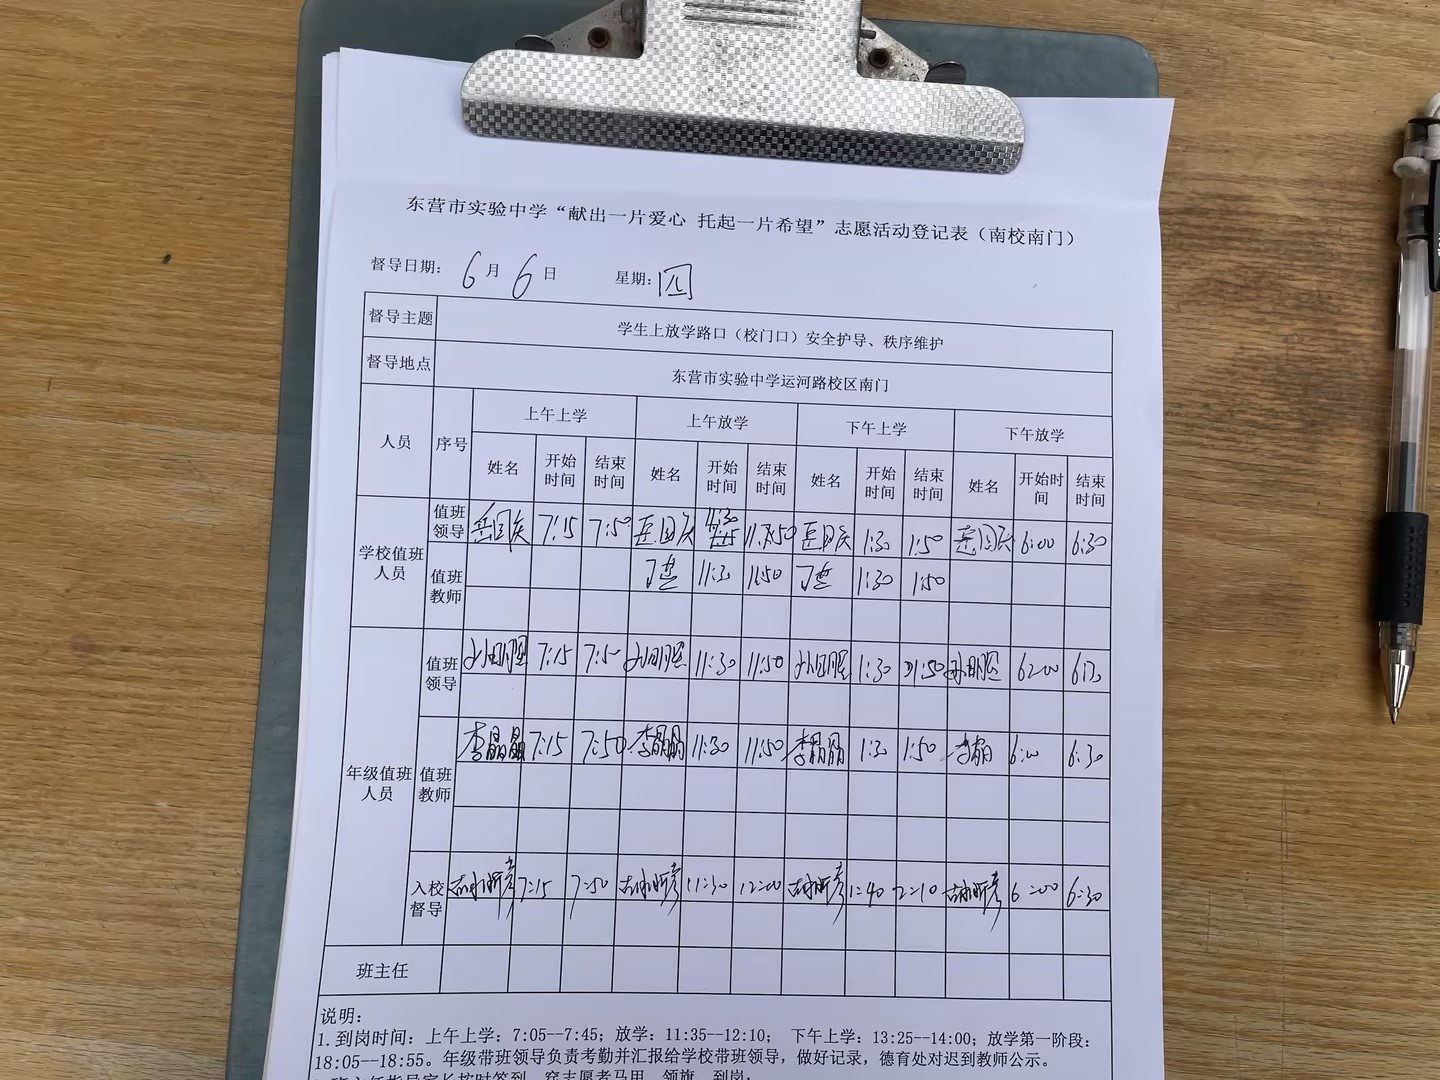 东营市实验中学“献出一片爱心 托起一片希望”志愿活动登记表（南校南门）
督导日期： 6月 6日 星期：四
督导主题 学生上放学路口（校门口）安全护导、秩序维护
督导地点 东营市实验中学运河路校区南门
人员 序号 上午上学 上午放学 下午上学 下午放学
姓名 开始时间 结束时间 姓名 开始时间 结束时间 姓名 开始时间 结束时间 姓名 开始时间 结束时间
学校值班人员
值班领导 7:15 7:50 11:30 11:50 1:30 1:50 6:00 6:30
值班教师 11:30 11:50 1:30 1:50
年级值班人员
值班领导 7:15 7:50 11:30 11:50 1:30 1:50 6:00
值班教师 李晶晶 7:15 7:50 李晶晶 11:30 11:50 李晶晶 1:30 1:50 李晶 6:00 6:30
入校督导 7:15 7:50 11:30 12:00 1:40 2:10 6:00 6:30
班主任
说明：
1. 到岗时间：上午上学：7:05--7:45；放学：11:35--12:10； 下午上学：13:25--14:00；放学第一阶段：
18:05--18:55。年级带班领导负责考勤并汇报给学校带班领导，做好记录，德育处对迟到教师公示。